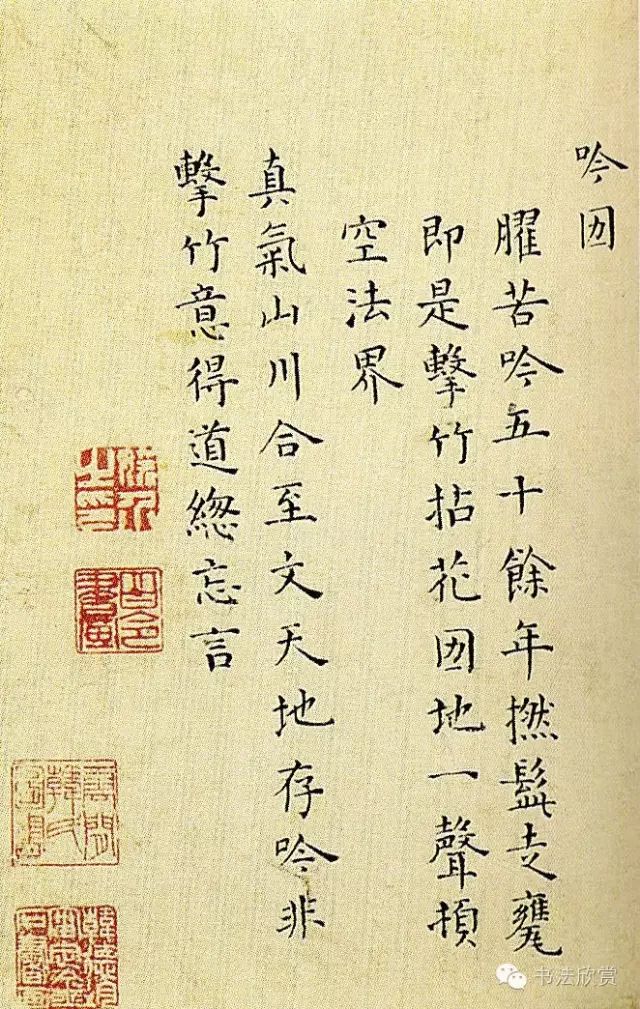 吟㘞
臞苦吟五十餘年撚髭走甕
即是擊竹拈花㘞地一聲頓
空法界
真氣山川合至文天地存吟非
擊竹意得道總忘言
书法欣赏